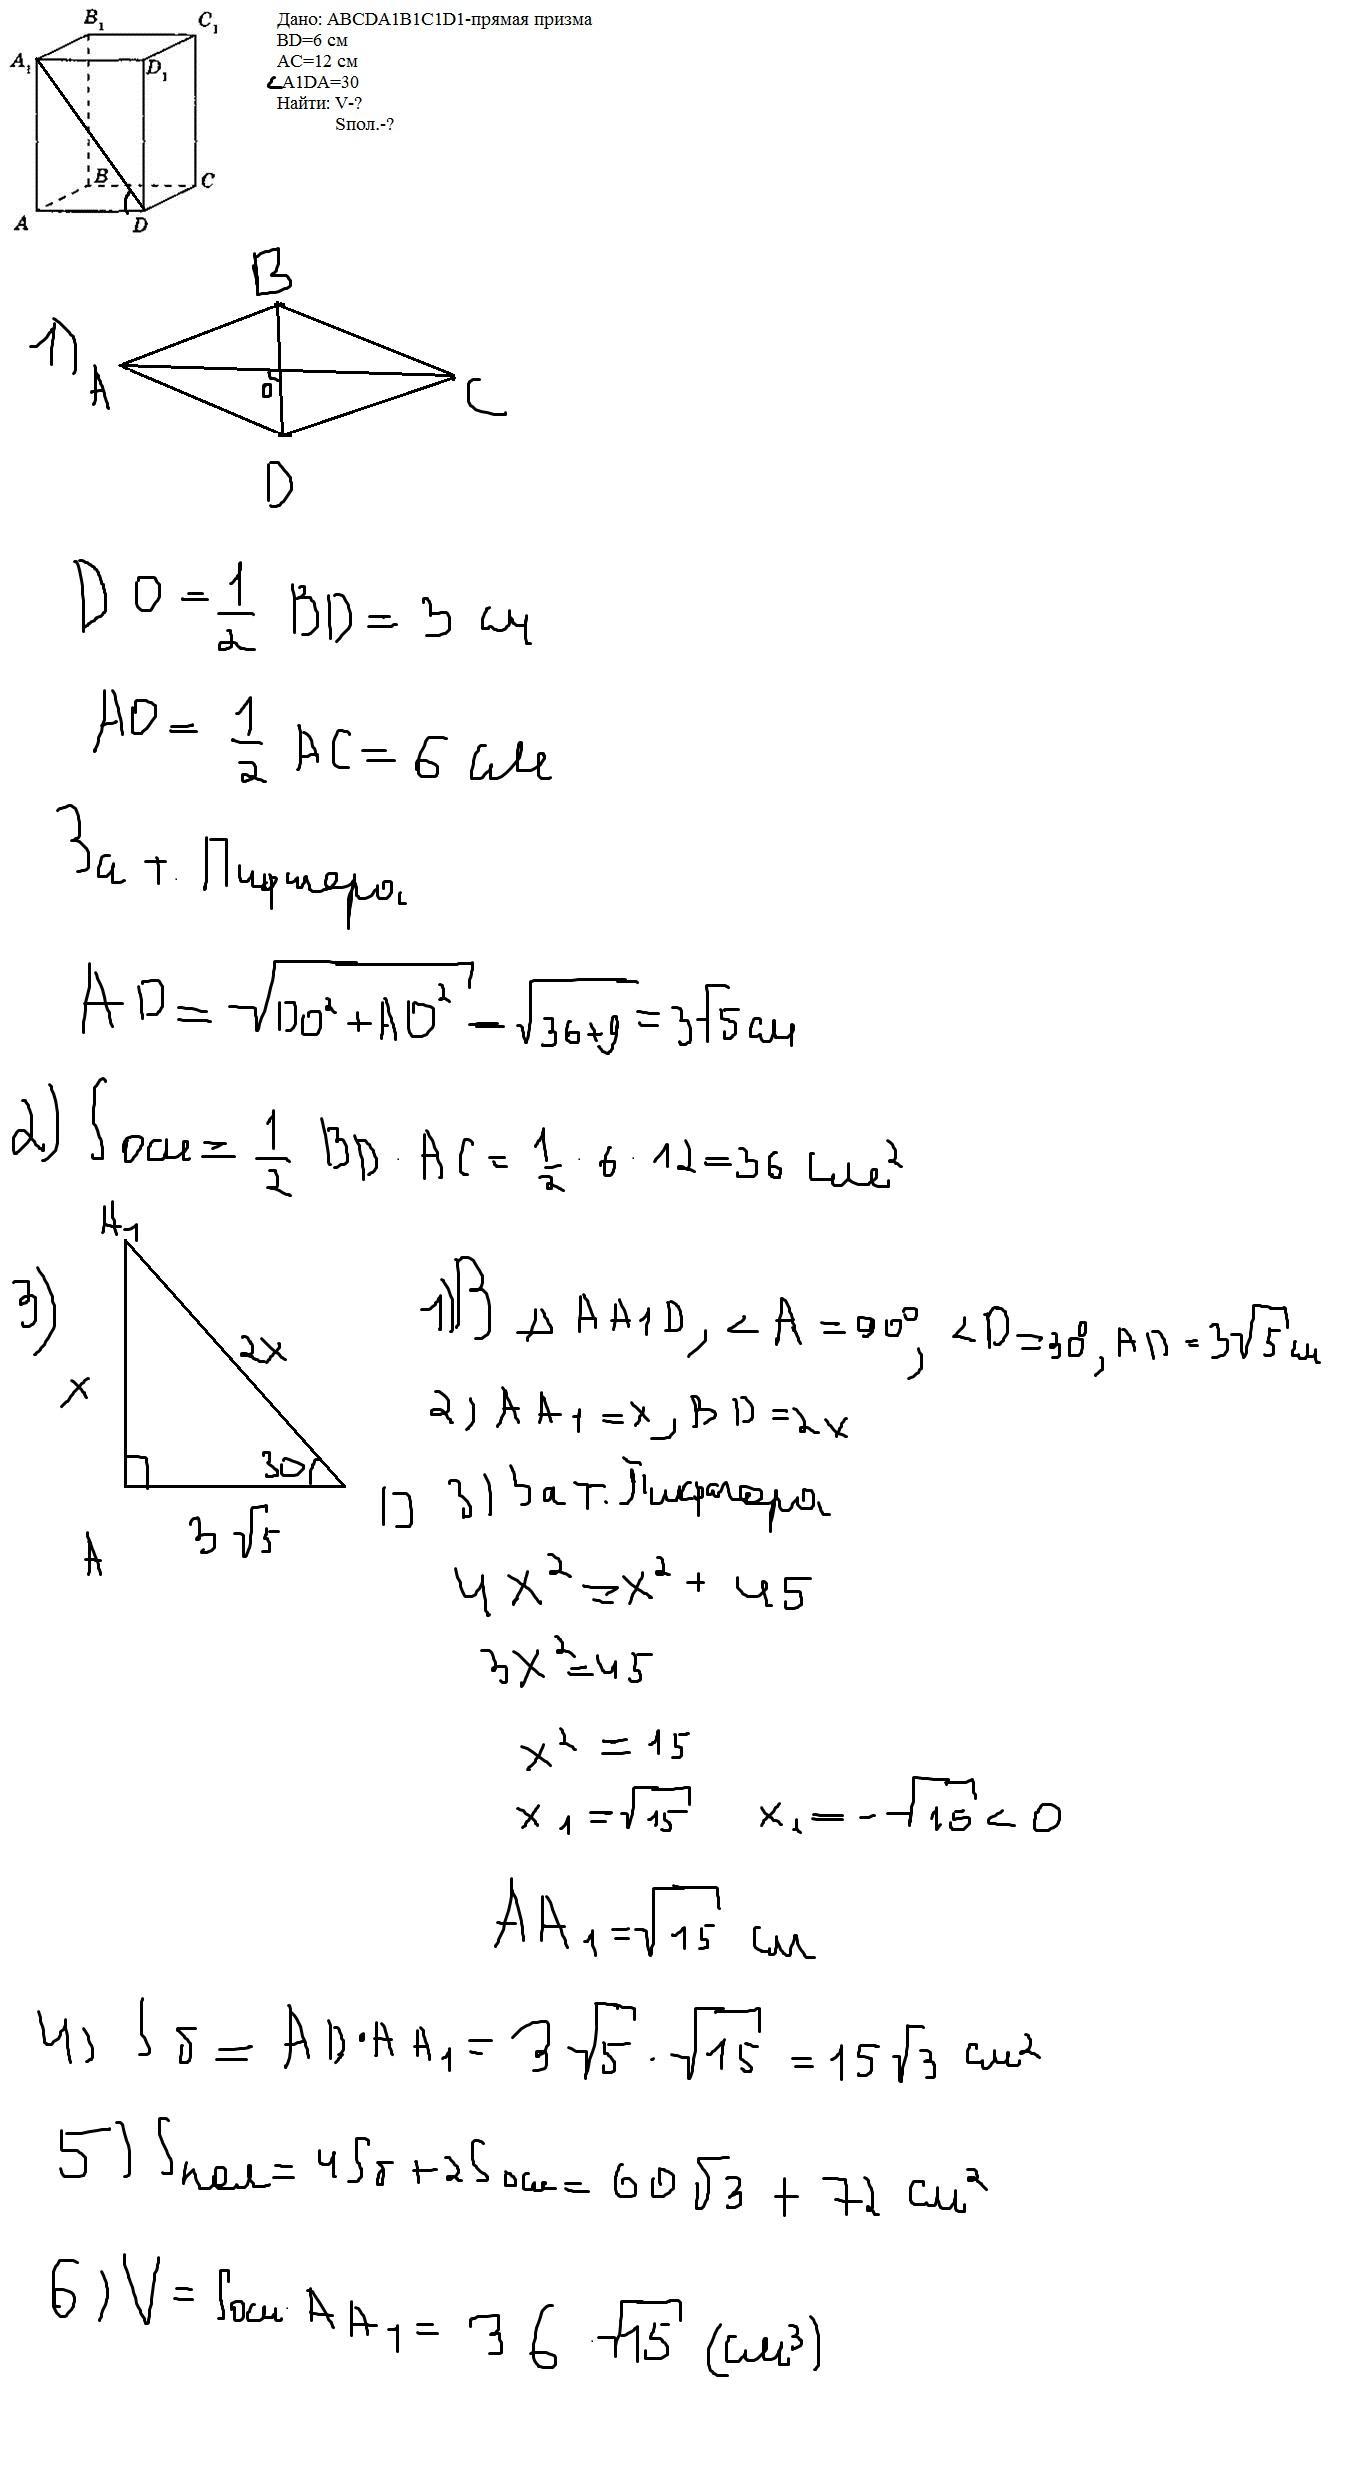 B1 C1
A1 D1
B C
A D
Дано: ABCDA1B1C1D1-прямая призма
BD=6 см
AC=12 см
∠A1DA=30
Найти: V-?
Sпол.-?
1)
B
A O C
D
DO = 1/2 BD = 3 см
AO = 1/2 AC = 6 см
За т. Пифагора
AD = √(DO² + AO²) = √(36+9) = 3√5 см
2) Sосн = 1/2 BD · AC = 1/2 · 6 · 12 = 36 см²
3)
A1
x 2x
30
A 3√5 D
1) В △ AA1D, <A = 90°, <D = 30°, AD = 3√5 см
2) AA1 = x, BD = 2x
3) За т. Пифагора
4x² = x² + 45
3x² = 45
x² = 15
x1 = √15 x2 = -√15 < 0
AA1 = √15 см
4) Sб = AD · AA1 = 3√5 · √15 = 15√3 см²
5) Sпол = 4Sб + 2Sосн = 60√3 + 72 см²
6) V = Sосн · AA1 = 36 · √15 (см³)